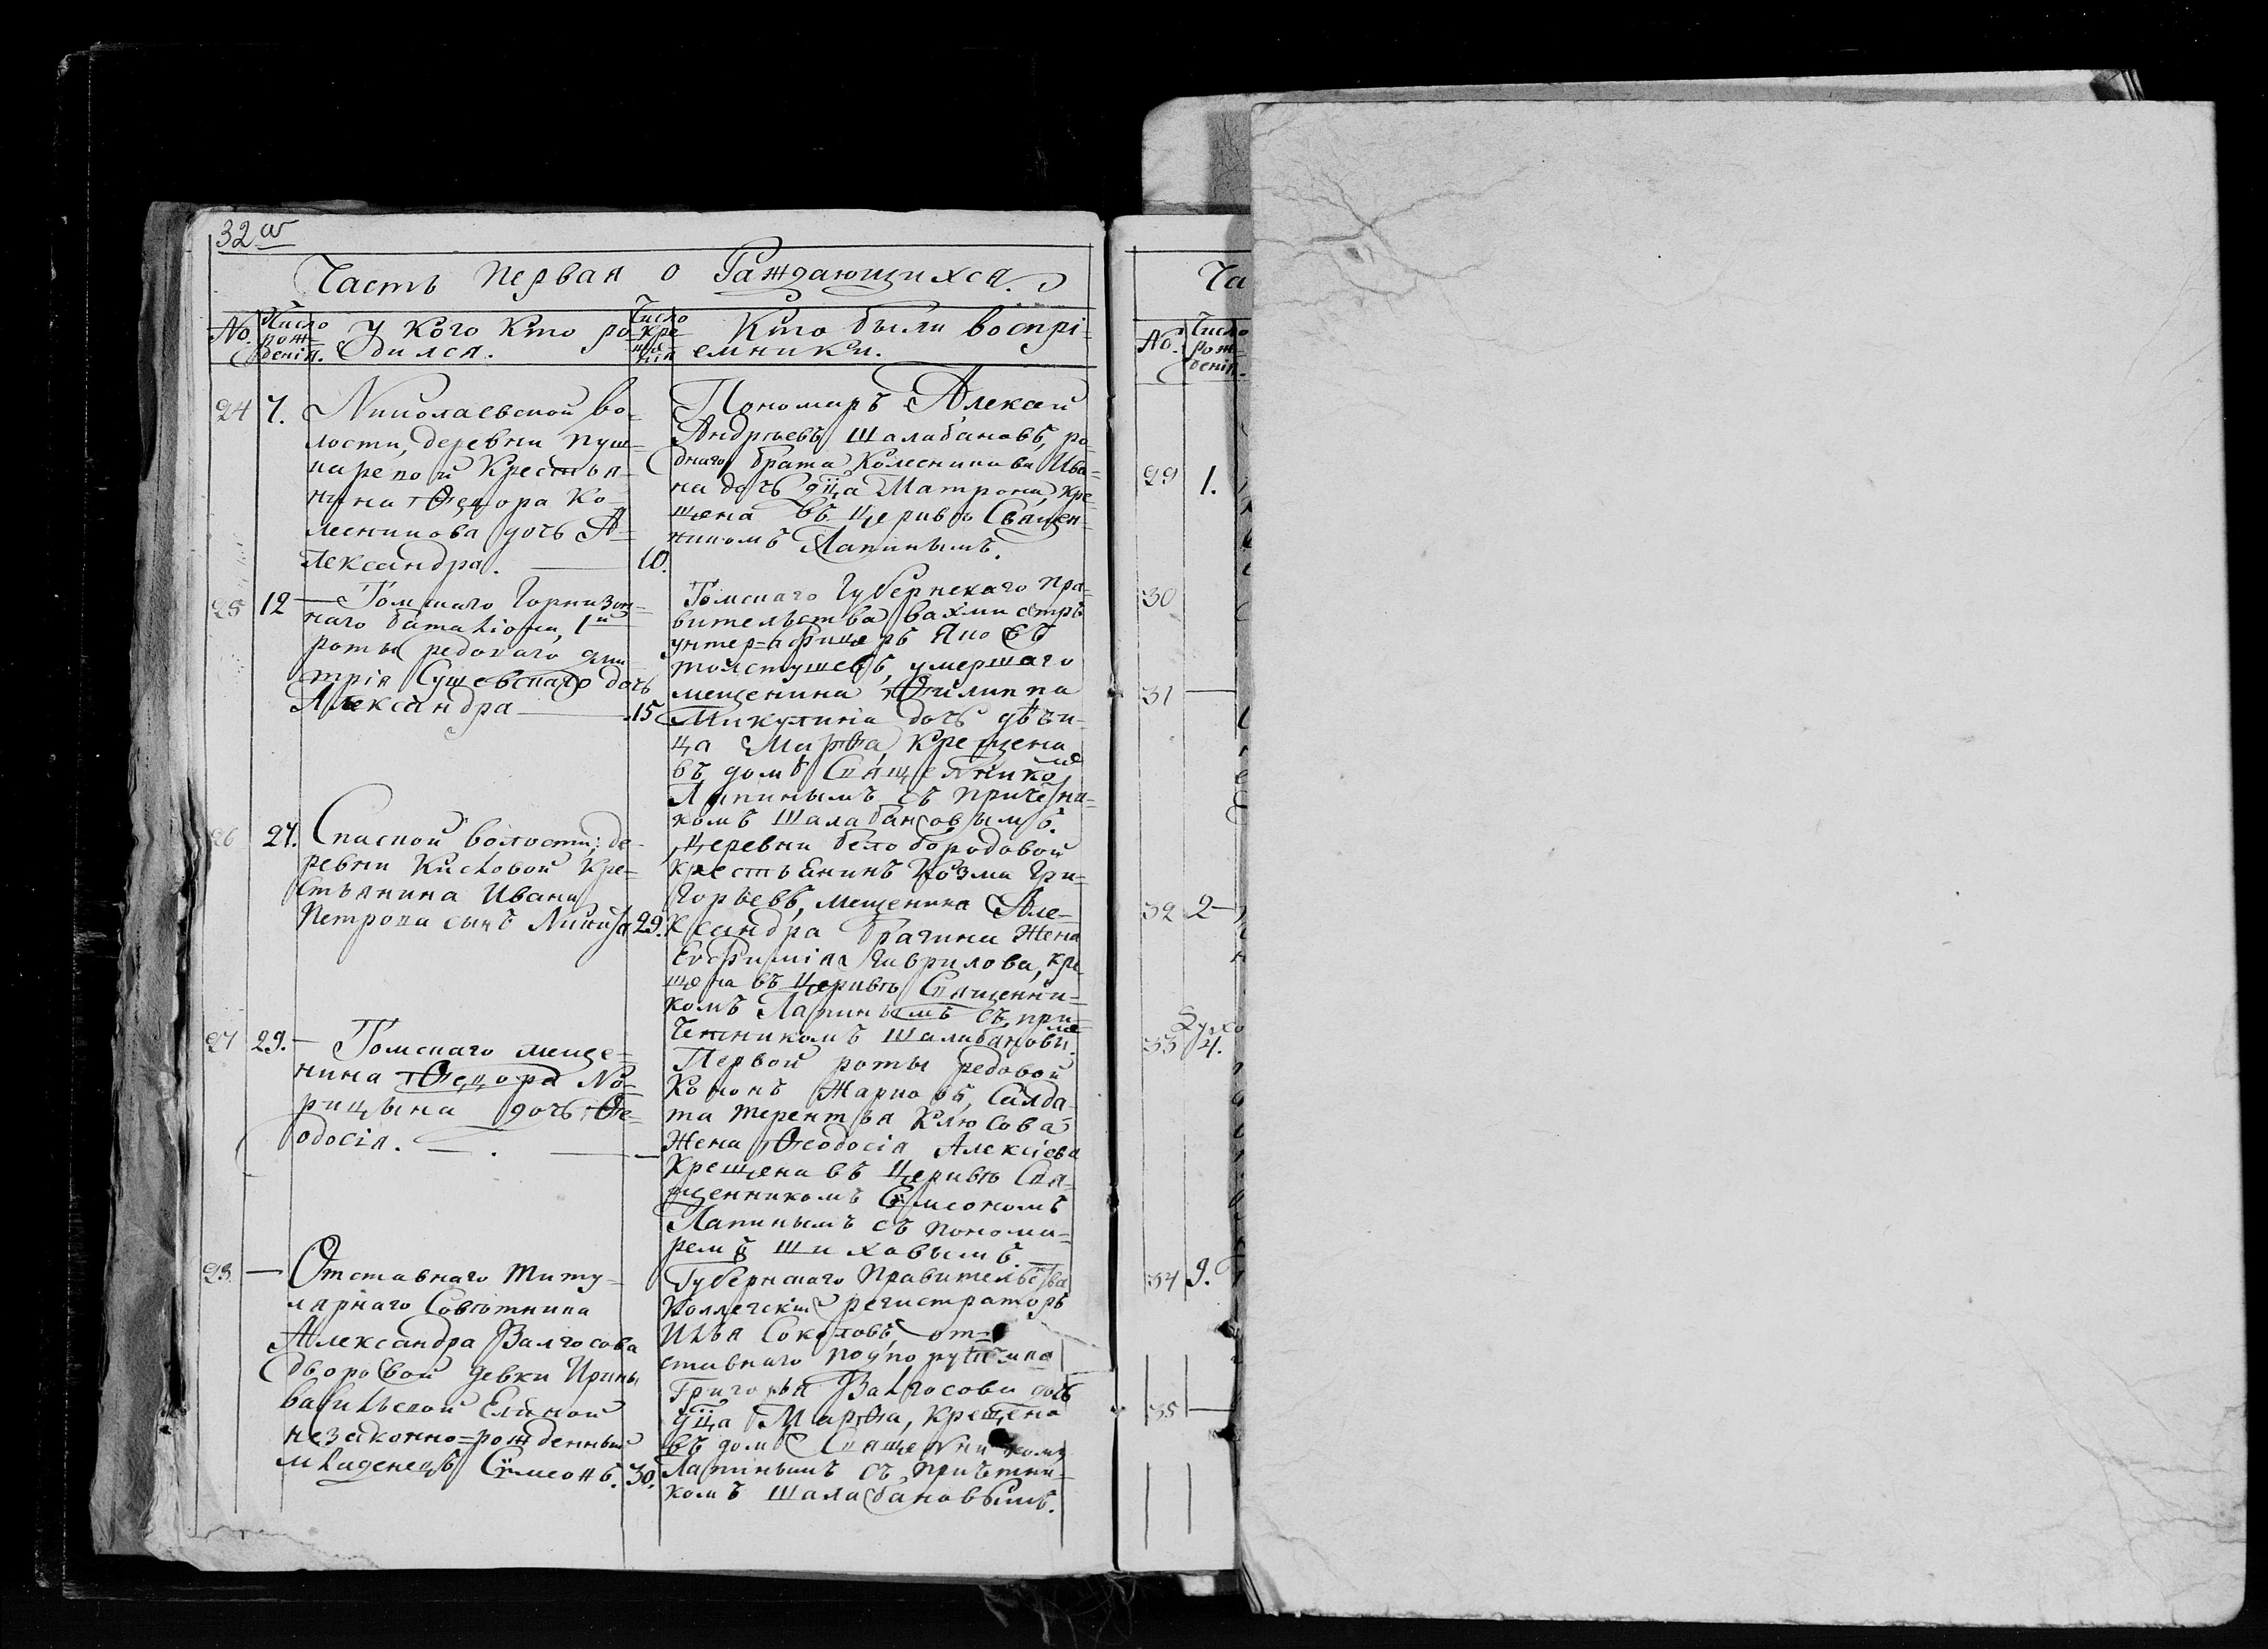 32
Часть Первая о Раждающихся.
No. Число рож- денія. У кого кто ро- дился. Число кре- ще- нія Кто были воспрі- емники.
24 7. Николаевской во-
лости, деревни пуш-
каревой Крестья-
нина Ѳедора Ко-
лесникова дочь А-
лександра. — 10.
Пономарь Алексей
Андреевъ Шалабановъ, ро-
днаго брата Колесникова Ива-
на дочь дѣца Матрона, кре-
щена въ Церивѣ Священ-
никомъ Лапинымъ.
25 12 — Томскаго Горнизон-
наго баталіона, 1й
роты редоваго дми-
трія Сушевскаго дочь
Александра — 15
Томскаго Губернскаго пра-
вительства вахмистръ
унтер=афицеръ Яковъ
толстушевъ, умершаго
мещенина Филиппа
Микулина дочь дѣви-
ца Марѳа, Крещена
въ домѣ Священнико
Лапинымъ съ причетни-
комъ Шалабановымъ.
26 27. Спаской волости; де-
ревни Кисловой Кре-
стьянина Ивана
Петрова сынъ Никита 29.
Деревни белобородовой
крестьянинъ Козма Гри-
горьевъ, мещенина Але-
ксандра брагина Жена
Евфимія Гаврилова, кре-
щена въ Церивѣ Священни-
комъ Лапинымъ съ при-
четникомъ Шалабановы
27 29. — Томскаго меще-
нина Ѳедора
рицына дочь Ѳе-
одосія. — . —
Первой роты редовой
Конон Жарковъ, Салда-
та терентья Клюсова
Жена Ѳеодосія Алексіева
Крещена въ Церивѣ Свя-
щенникомъ Симеономъ
Лапинымъ съ понома-
ремъ Шиховымъ.
28 — Отставнаго титу-
лярнаго Совѣтника
Александра Валгосова
дворовой девки Ирины
Васильевой Елиной
незаконно=рожденный
младенецъ Симеонъ. 30.
Губернскаго Правительства
Коллегскій регистраторъ
Илья Соколовъ, от=
ставнаго подпорутчика
Григорья Валгосова дочь
дѣца Марѳа, крещено
въ домѣ Священникомъ
Лапинымъ съ причетни-
комъ Шалабановымъ.
Ча
No. Число рож- денія.
29 1.
30
31 —
32 2 —
33 4.
34 9.
35 —